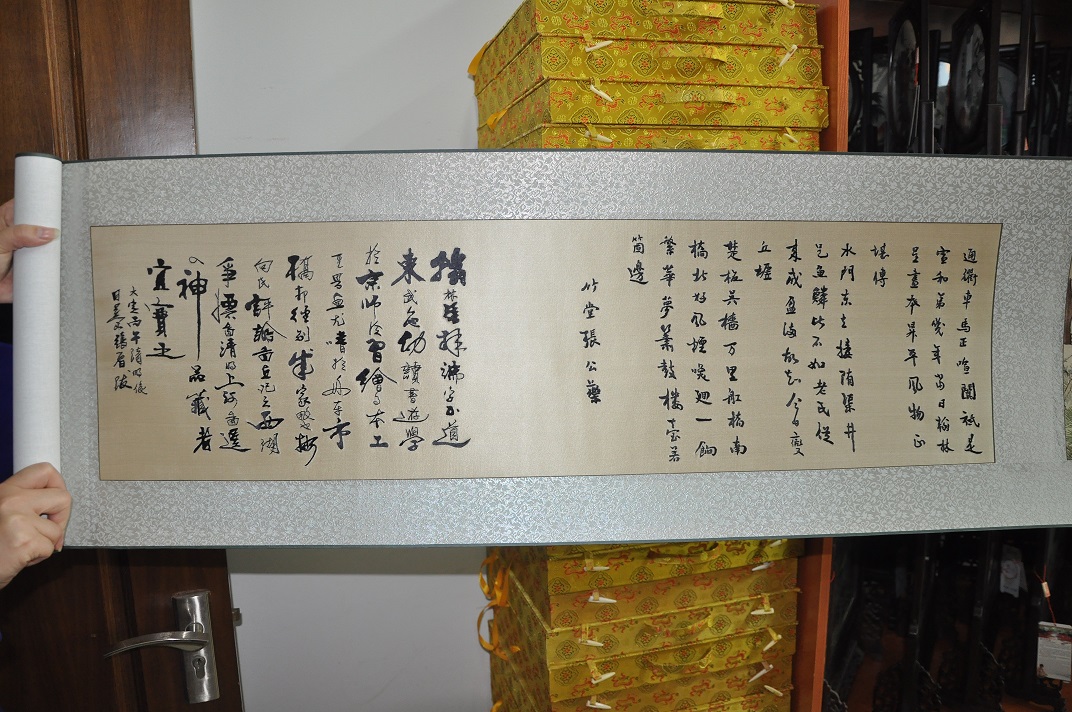 通衢車馬正喧闐祇是
宣和第幾年當日翰林
呈畫本昇平風物正
堪傳
水門東去接隋渠井
邑魚鱗比不如老氏從
來戒盈滿故知今日變
丘墟
楚柂吳檣万里舡橋南
橋北好風煙喚迴一餉
繁華夢簫鼓樓臺若
箇邊
竹堂張公藥
翰林張擇端字正道
東武人幼讀書遊學
於京師後習繪事本工
其界畫尤嗜於舟車市
橋郭徑別成家數按
向氏評論圖畫記云西湖
爭標圖清明上河圖選
入神品藏者
宜寶之
大定丙午清明後
一日燕山張著跋